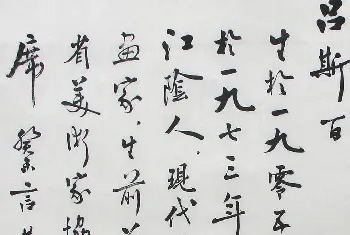 吕斯百
生於一九零五
於一九七三年
江陰人，現代
画家，生前
省美術家協
席
癸未言